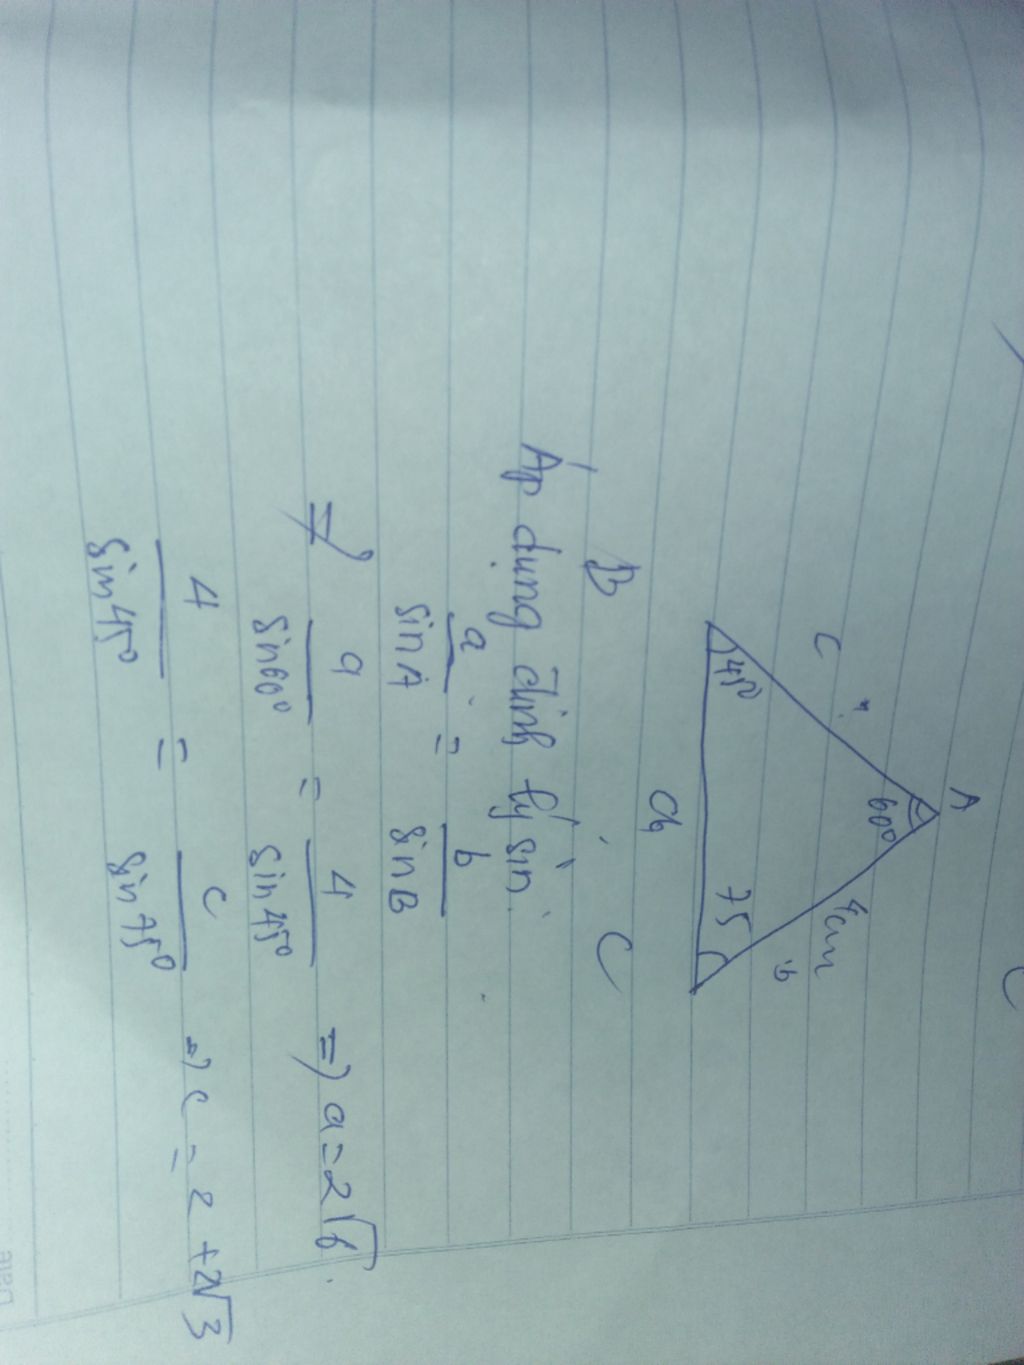 A
60°
C
4cm
b
45°
75
a
B
C
Áp dụng định lý sin.
a/sin A = b/sin B
=> a/sin60° = 4/sin45° => a = 2√6.
4/sin45° = c/sin75° => c = 2 + 2√3
Date